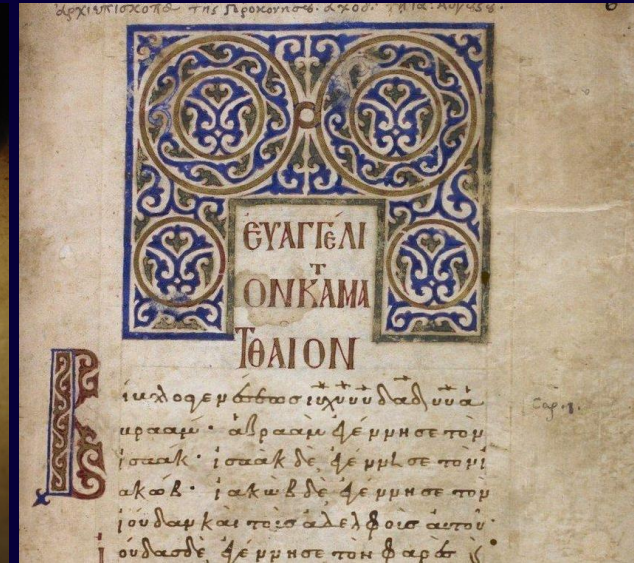 ἀρχιεπισκόπου της
ἐΥΑΓΓέΛΙ
ΟΝΚΑ^ΤΜΑ
ΤΘΑΙΟΝ
Βίβλος γενέσεως ιυ χυ υυ δαδ υυ ἀ
Cap. 1.
βρααμ · ἀβρααμ ἐγέννησε τὸν
ἰσαακ · ἰσαακ δὲ ἐγέννησε τὸν ἰ
ακωβ · ἰακωβ δὲ ἐγέννησε τὸν
ἰούδαν καὶ τοὺς ἀδελφοὺς αὐτοῦ ·
ἰούδας δὲ ἐγέννησε τὸν φαρὲς